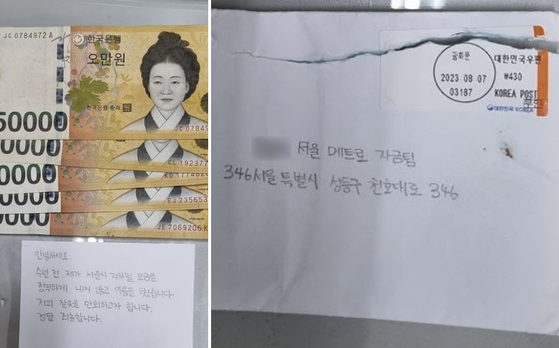 JC 0784972 A
한국은행
오만원
한국은행 총재
50000
JC 0784
CL 19237
KD 17746
EJ 23565
JE 7069206 K
안녕하세요
수년 전 제가 서울시 지하철 요금을
정당하게 내지 않고 이용을 했습니다
저의 잘못을 만회하고자 합니다.
정말 죄송합니다.
광화문
2023 08 07
03187
대한민국우편
₩430
KOREA POST
대한민국 KOREA
서울 메트로 자금팀
346서울 특별시 성동구 천호대로 346